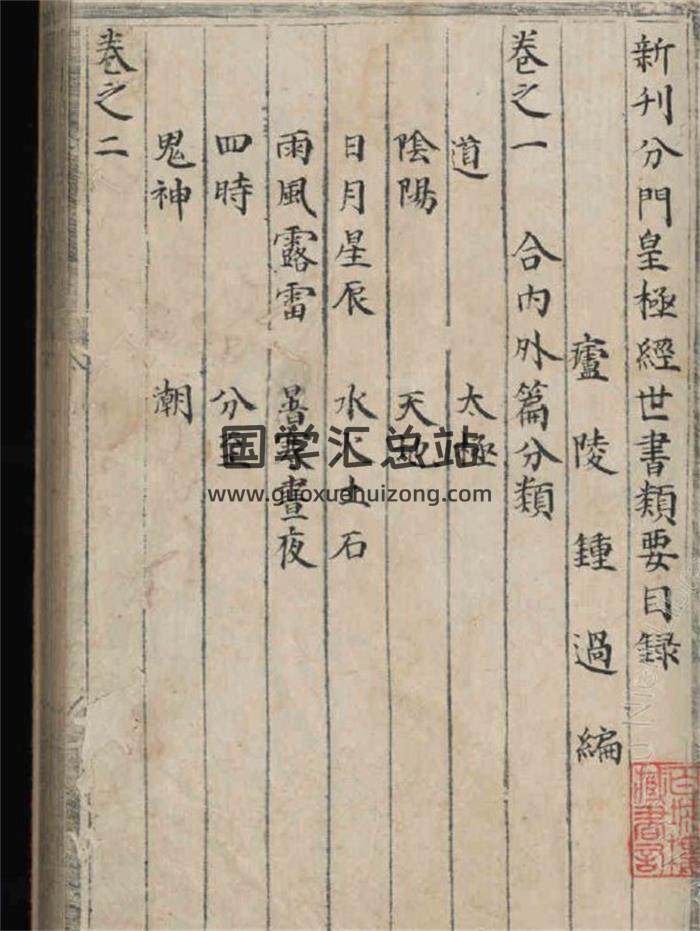 新刊分門皇極經世書類要目録
廬陵鍾過編
卷之一 合内外篇分類
道 太極
陰陽 天地
日月星辰 水火土石
雨風露雷 暑寒晝夜
四時 分至
鬼神 潮
卷之二
国学汇总站
www.guoxuehuizong.com